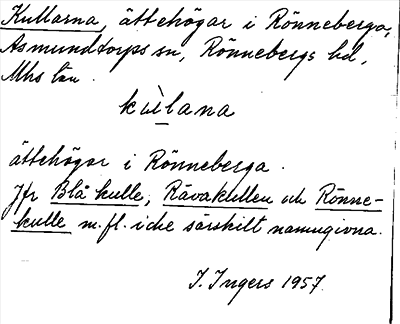 Kullarna, ättehögar i Rönneberga,
Asmundtorps sn, Rönnebergs hd,
Mhs län.
kùlana
ättehögar i Rönneberga.
Jfr Blå kulle, Rävakullen och Rönne-
kulle m.fl. icke särskilt namngivna.
I. Ingers 1957.